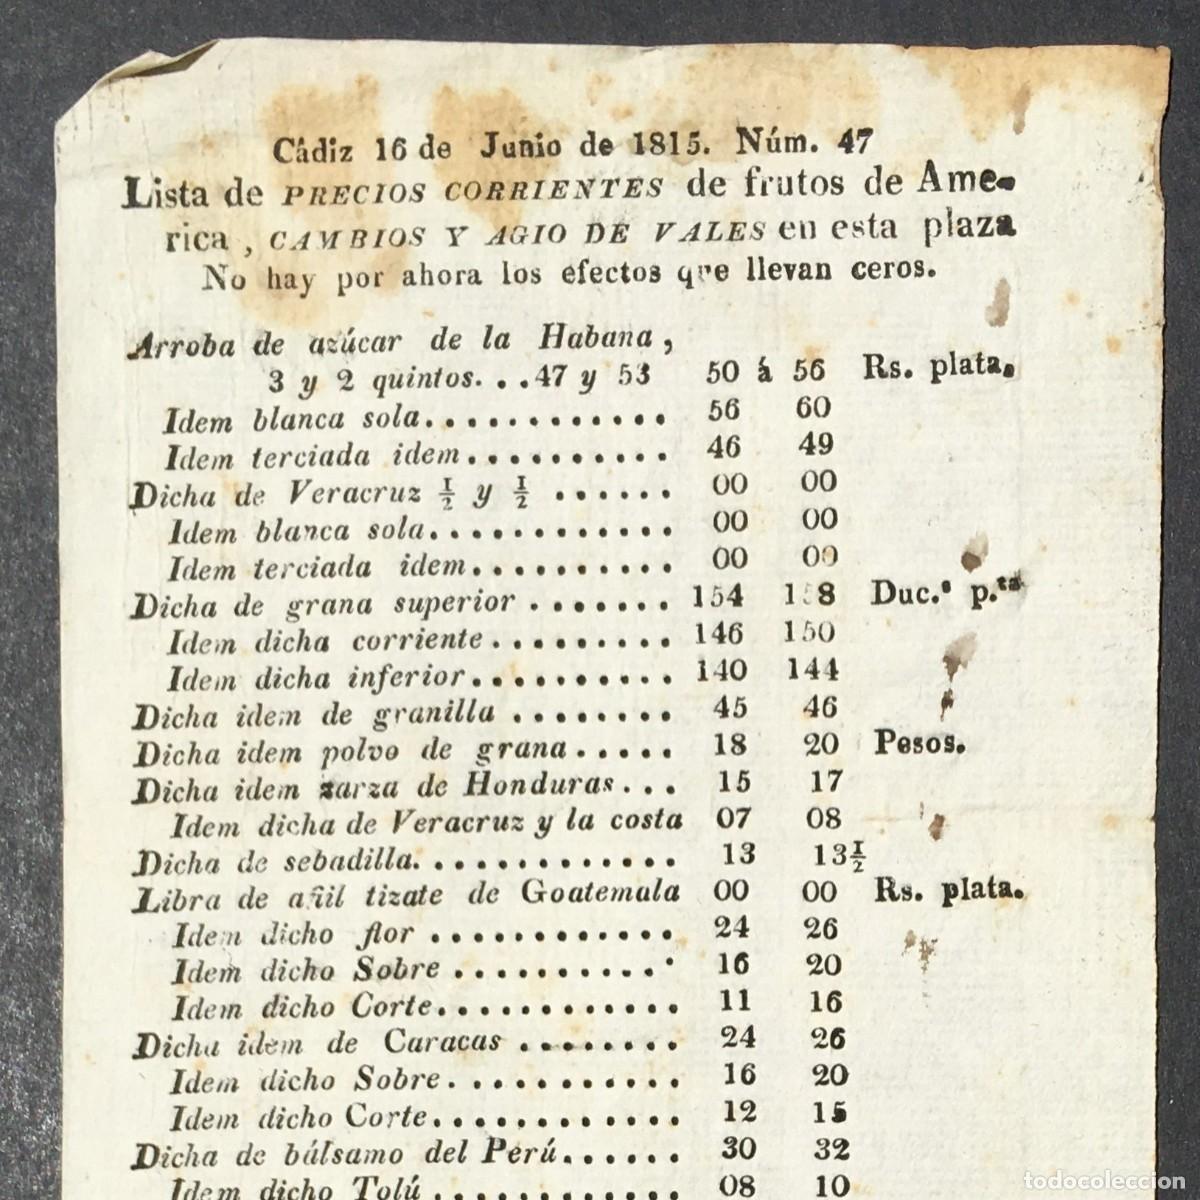 Cádiz 16 de Junio de 1815. Núm. 47
Lista de PRECIOS CORRIENTES de frutos de Ame-
rica, CAMBIOS Y AGIO DE VALES en esta plaza
No hay por ahora los efectos que llevan ceros.
Arroba de azúcar de la Habana,
3 y 2 quintos...47 y 53 50 á 56 Rs. plata.
Idem blanca sola............ 56 60
Idem terciada idem.......... 46 49
Dicha de Veracruz ½ y ½ ...... 00 00
Idem blanca sola............ 00 00
Idem terciada idem.......... 00 00
Dicha de grana superior ....... 154 158 Duc.s p.ta
Idem dicha corriente......... 146 150
Idem dicha inferior.......... 140 144
Dicha idem de granilla ........ 45 46
Dicha idem polvo de grana..... 18 20 Pesos.
Dicha idem zarza de Honduras... 15 17
Idem dicha de Veracruz y la costa 07 08
Dicha de sebadilla............. 13 13½
Libra de añil tizate de Goatemala 00 00 Rs. plata.
Idem dicho flor ............ 24 26
Idem dicho Sobre ........... 16 20
Idem dicho Corte............ 11 16
Dicha idem de Caracas ........ 24 26
Idem dicho Sobre............ 16 20
Idem dicho Corte............ 12 15
Dicha de bálsamo del Perú...... 30 32
Idem dicho Tolú ............ 08 10
todocoleccion